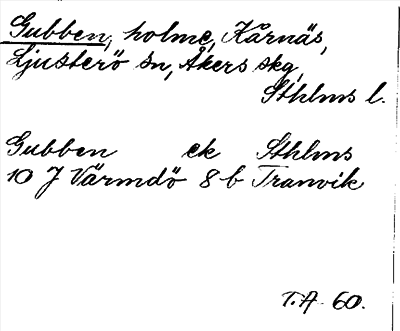 Gubben, holme, Kårnäs,
Ljusterö sn, Åkers skg,
Sthlms l.
Gubben ek Sthlms
10 J Värmdö 8 b Tranvik
T.A. 60.